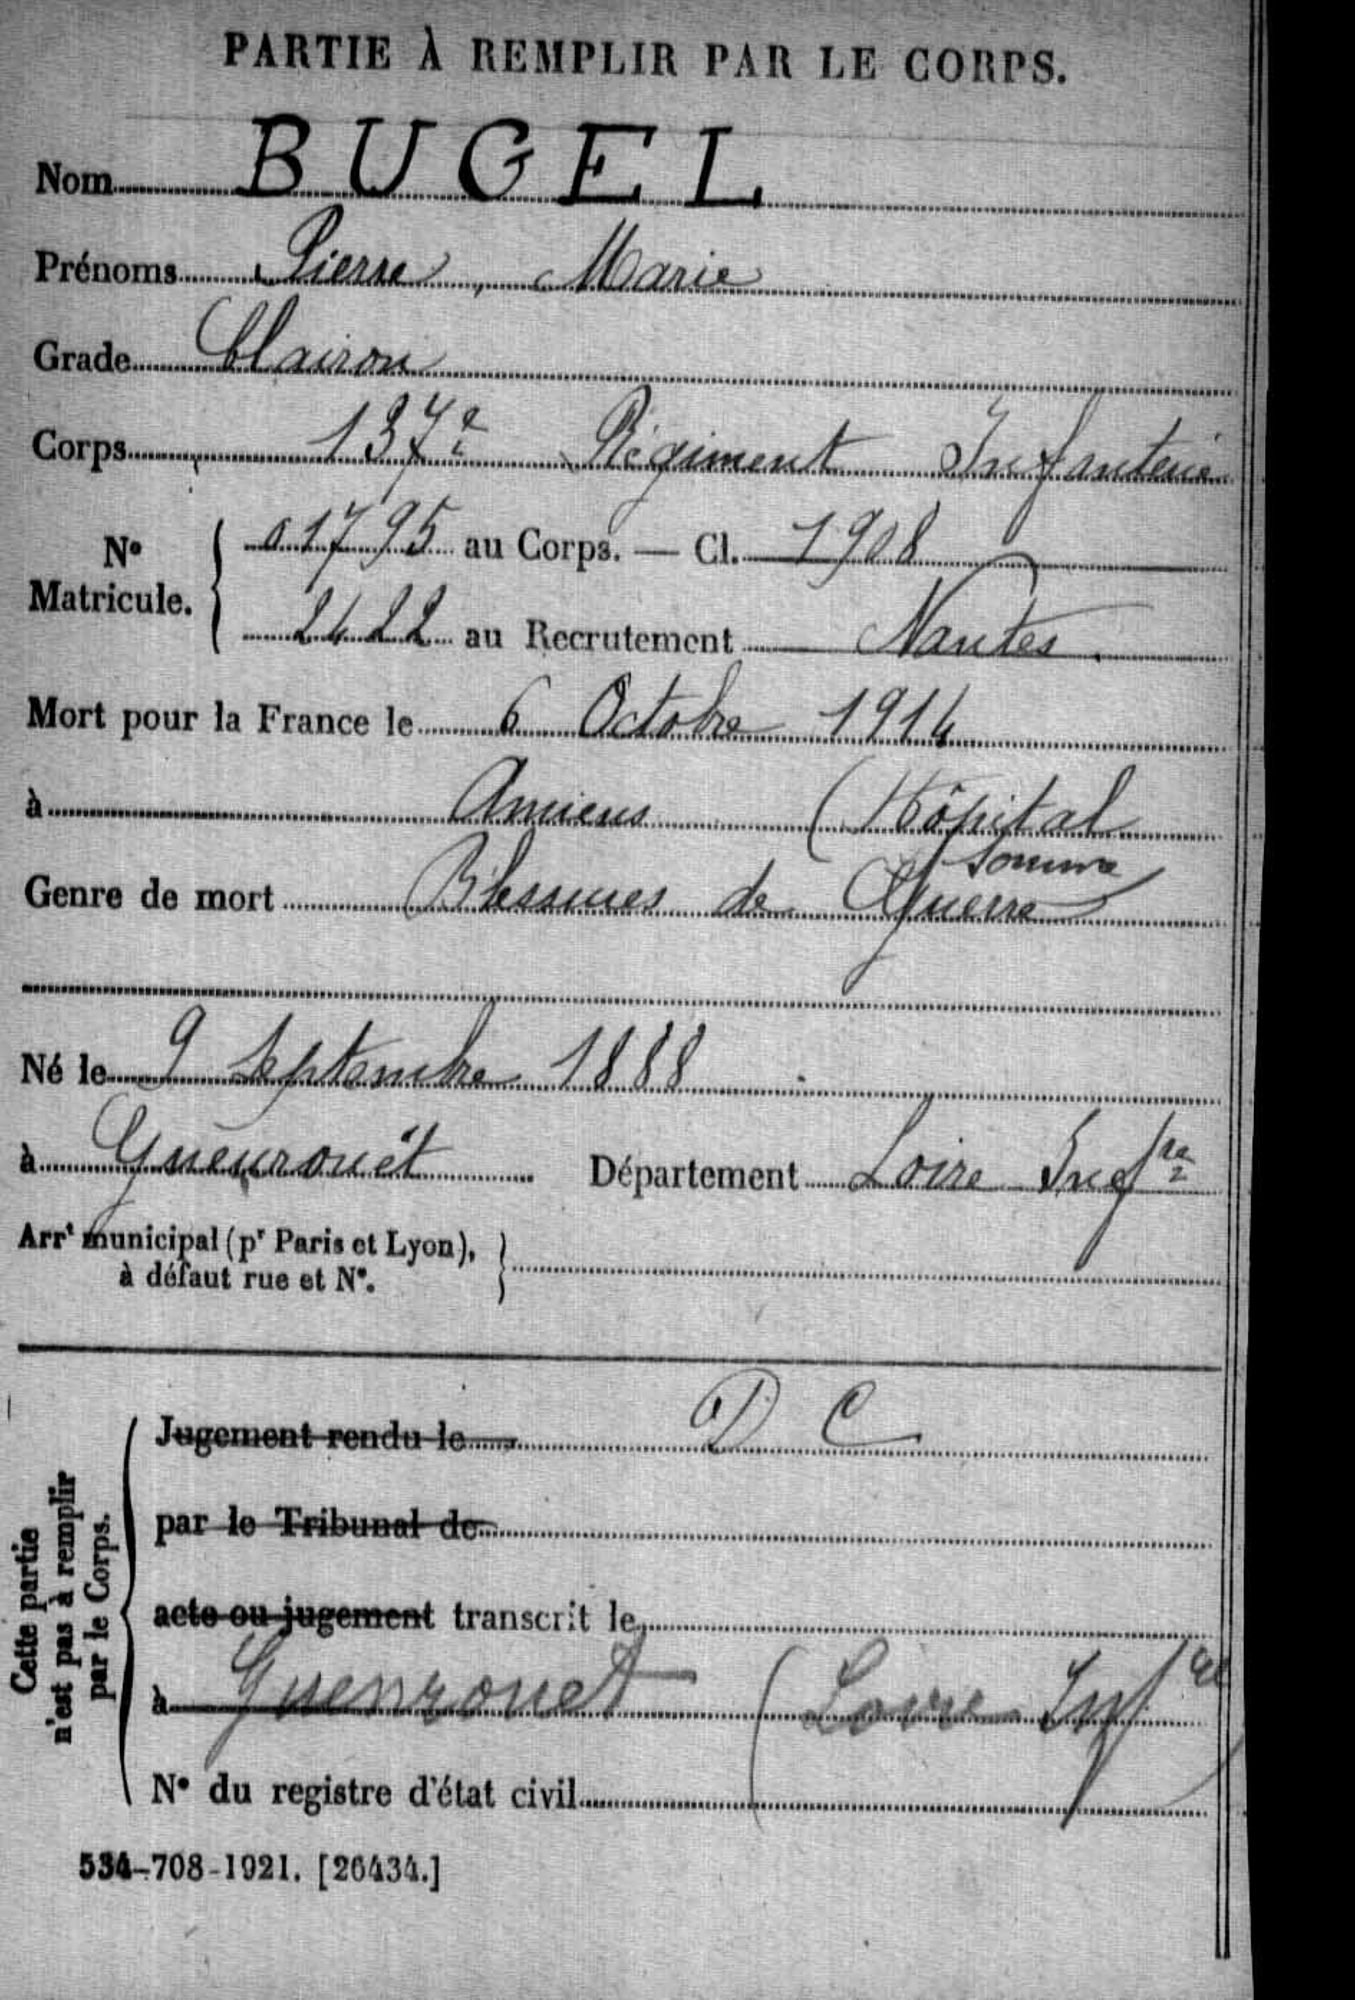 PARTIE À REMPLIR PAR LE CORPS.
Nom BUGEL
Prénoms Pierre, Marie
Grade Clairon
Corps 137e Régiment Infanterie
No Matricule. 01795 au Corps. — Cl. 1908
2422 au Recrutement Nantes.
Mort pour la France le 6 Octobre 1914
à Amiens (Hôpital
Somme
Genre de mort Blessures de Guerre
Né le 9 Septembre 1888
à Gueurouët Département Loire Infre
Arrt municipal (pr Paris et Lyon),
à défaut rue et No.
Cette partie
n'est pas à remplir
par le Corps.
Jugement rendu le D C
par le Tribunal de
acte ou jugement transcrit le
à Guenrouet (Loire Infre)
No du registre d'état civil
534-708-1921. [26434.]